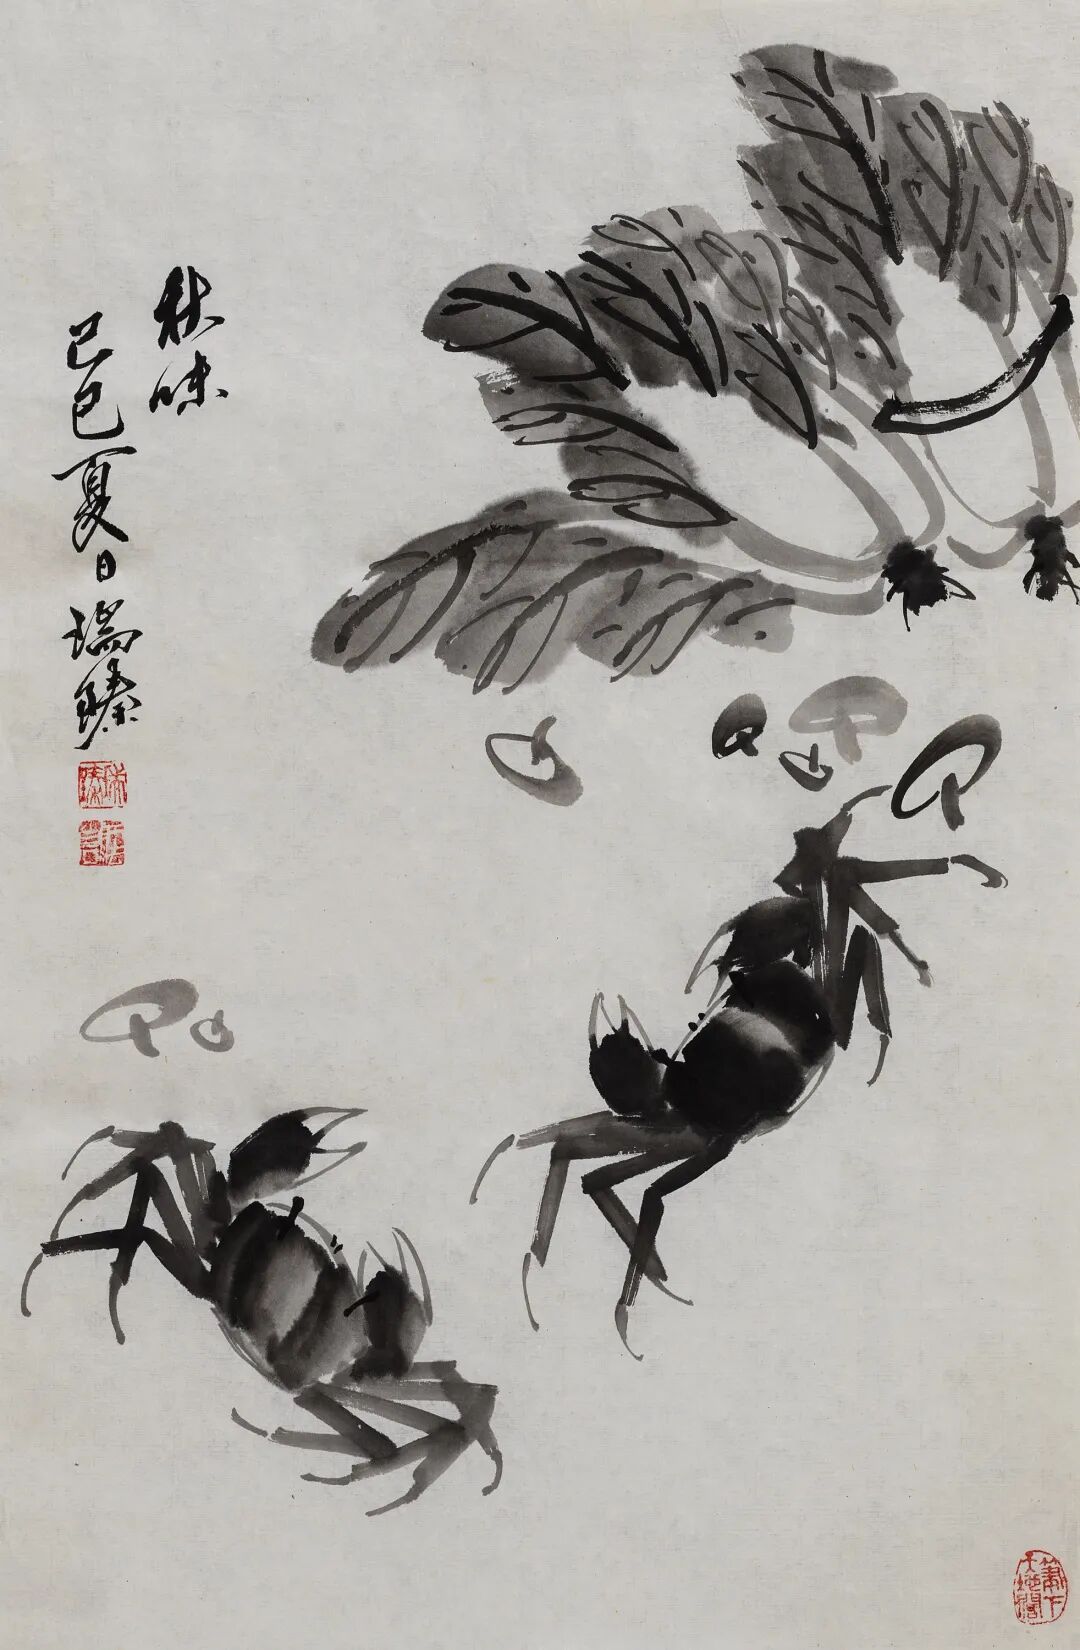 秋味
己巳夏日瑞臻